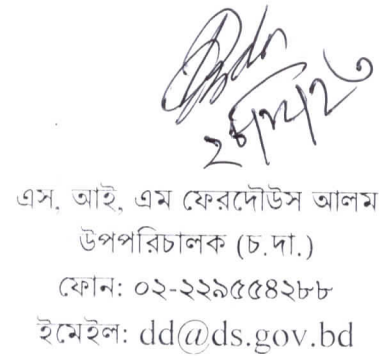 এস, আই, এম ফেরদৌউস আলম
উপপরিচালক (চ.দা.)
ফোন: ০২-২২৯৫৫৪২৮৮
ইমেইল: dd@ds.gov.bd